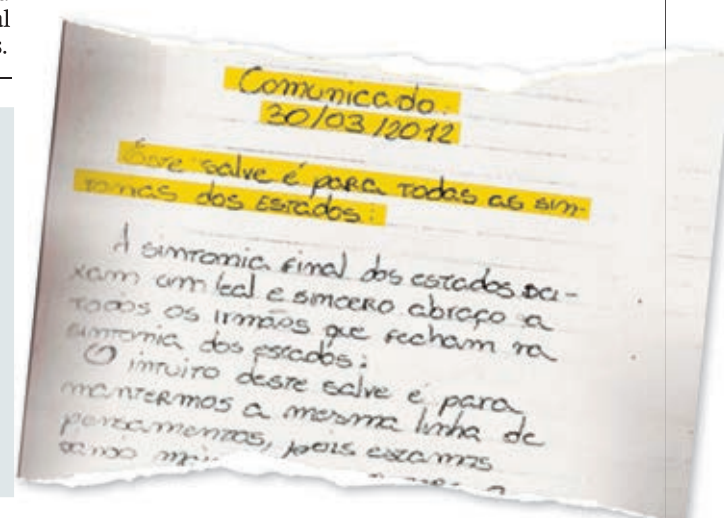 al
s.
Comunicado.
30/03/2012
Este salve é para todas as sin-
tomas dos Estados:
A sintomia final dos estados dei-
xam um leal e sincero abraço a
todos os irmãos que fecham na
sintomia dos estados;
O intuito deste salve é para
mantermos a mesma linha de
pensamentos, pois estamos